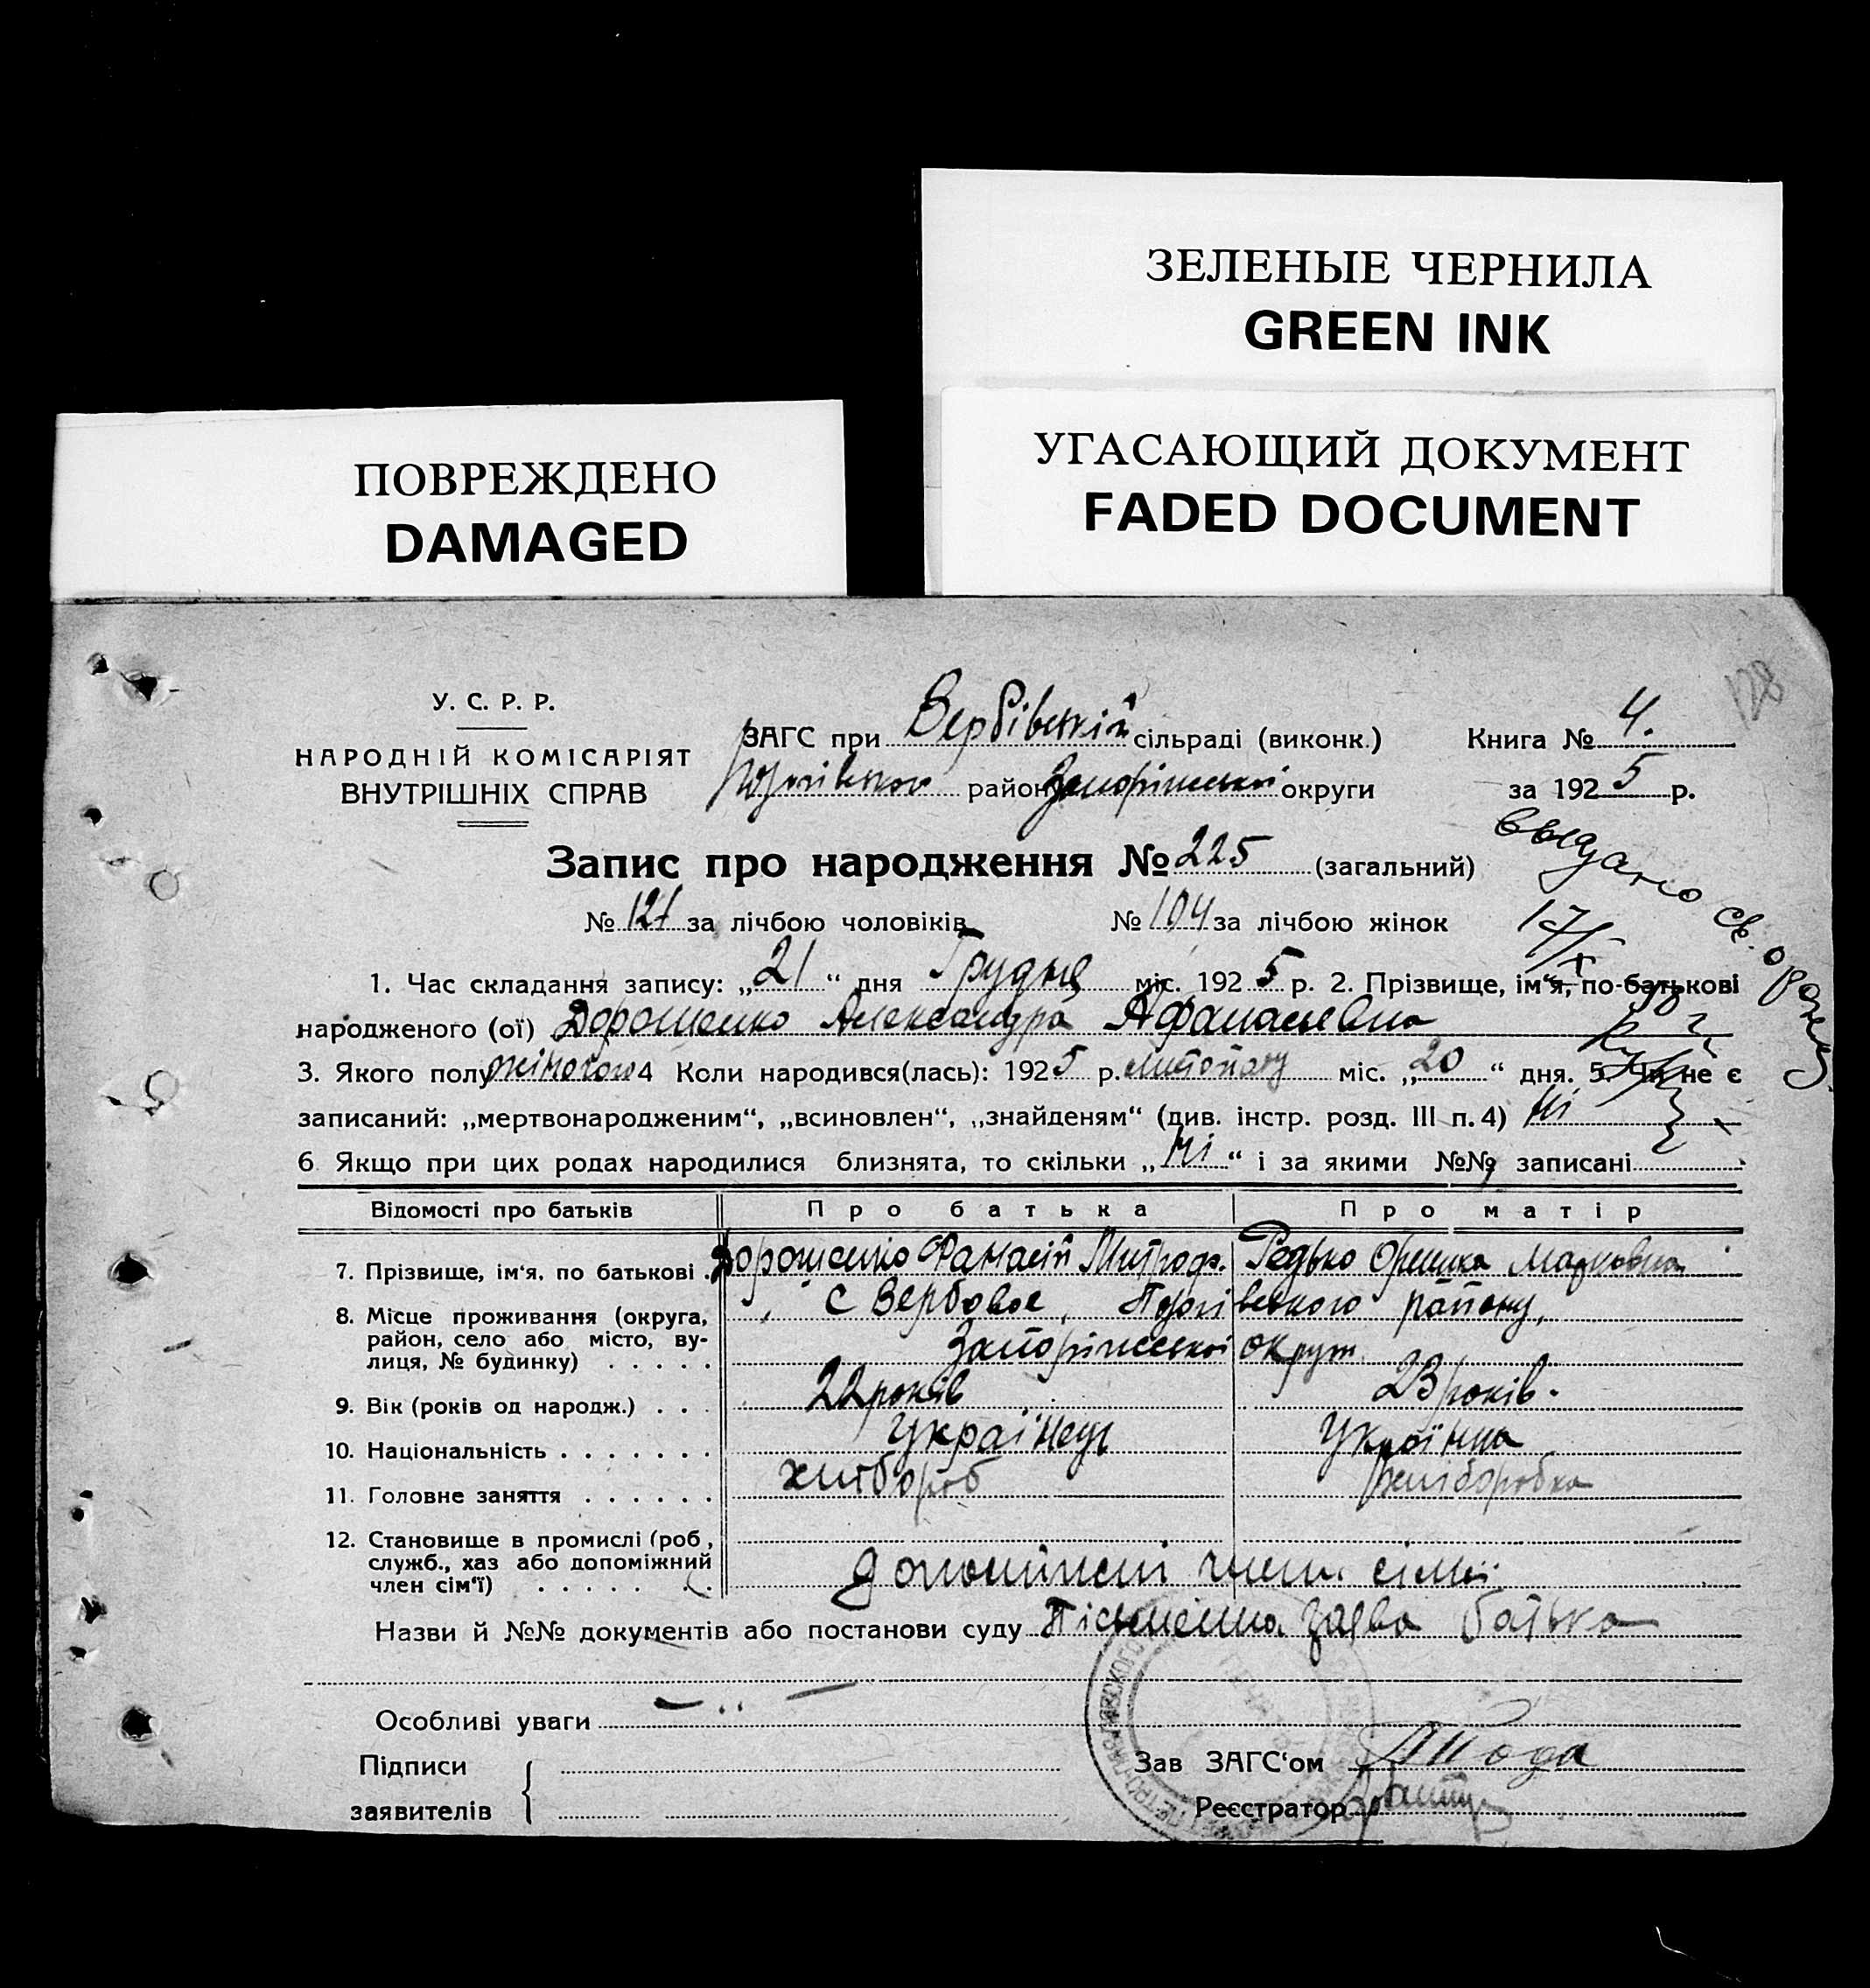 ЗЕЛЕНЫЕ ЧЕРНИЛА
GREEN INK
УГАСАЮЩИЙ ДОКУМЕНТ
FADED DOCUMENT
ПОВРЕЖДЕНО
DAMAGED
128
У. С. Р. Р.
НАРОДНІЙ КОМІСАРІЯТ
ВНУТРІШНІХ СПРАВ
ЗАГС при Вербівській сільраді (виконк.) Книга № 4.
район Запоріжської округи за 1925 р.
выдано св. о рожд
17/X
Запис про народження № 225 (загальний)
№ 121 за лічбою чоловіків № 104 за лічбою жінок
1. Час складання запису: „21“ дня Грудня міс. 1925 р. 2. Прізвище, ім‘я, по-батькові
народженого (ої) Дорошенко Александра Афанасьевна
3. Якого полу жіночого 4 Коли народився(лась): 1925 р. листопаду міс. „20“ дня. 5. Чи не є
записаний: „мертвонародженим“, „всиновлен“, „знайденям“ (див. інстр. розд. III п. 4) Ні
6 Якщо при цих родах народилися близнята, то скільки „Ні“ і за якими №№ записані
Відомості про батьків Про батька Про матір
7. Прізвище, ім‘я, по батькові Дорошенко Фанасій Митроф. Редько Оришка Марковна
8. Місце проживання (округа, с Вербовое, Пологівського району,
район, село або місто, ву-
лиця, № будинку) Запоріжської округи
9. Вік (років од народж.) 22 років 23 років.
10. Національність Українець Українка
11. Головне заняття хлібороб хліборобка
12. Становище в промислі (роб,
служб., хаз або допоміжний
член сім‘ї) допоміжні член. сімьї
Назви й №№ документів або постанови суду Пісьменна заява батька
Особливі уваги
Підписи
заявителів
Зав ЗАГС‘ом
Реєстратор